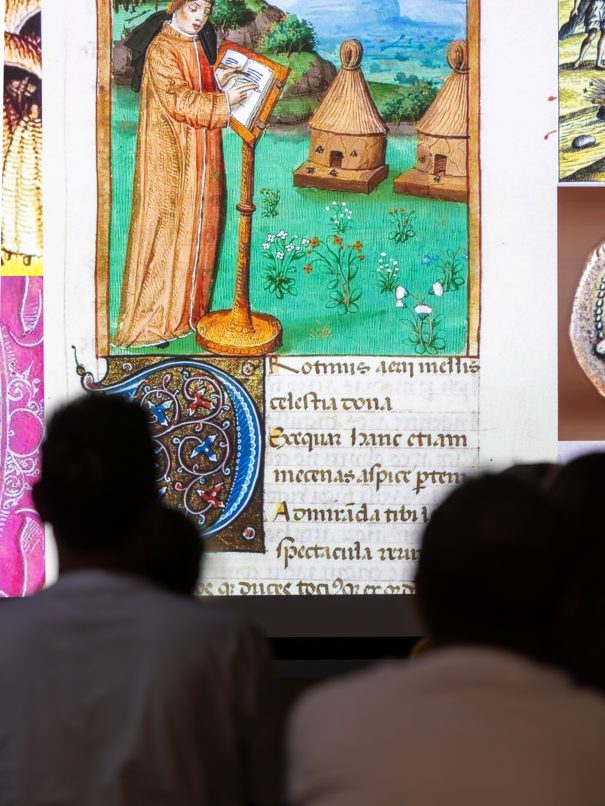 Rotinus aerii mellis
celestia dona
Exequar hanc etiam
mecenas aspice ptem
Admirāda tibi l
spectacula reru